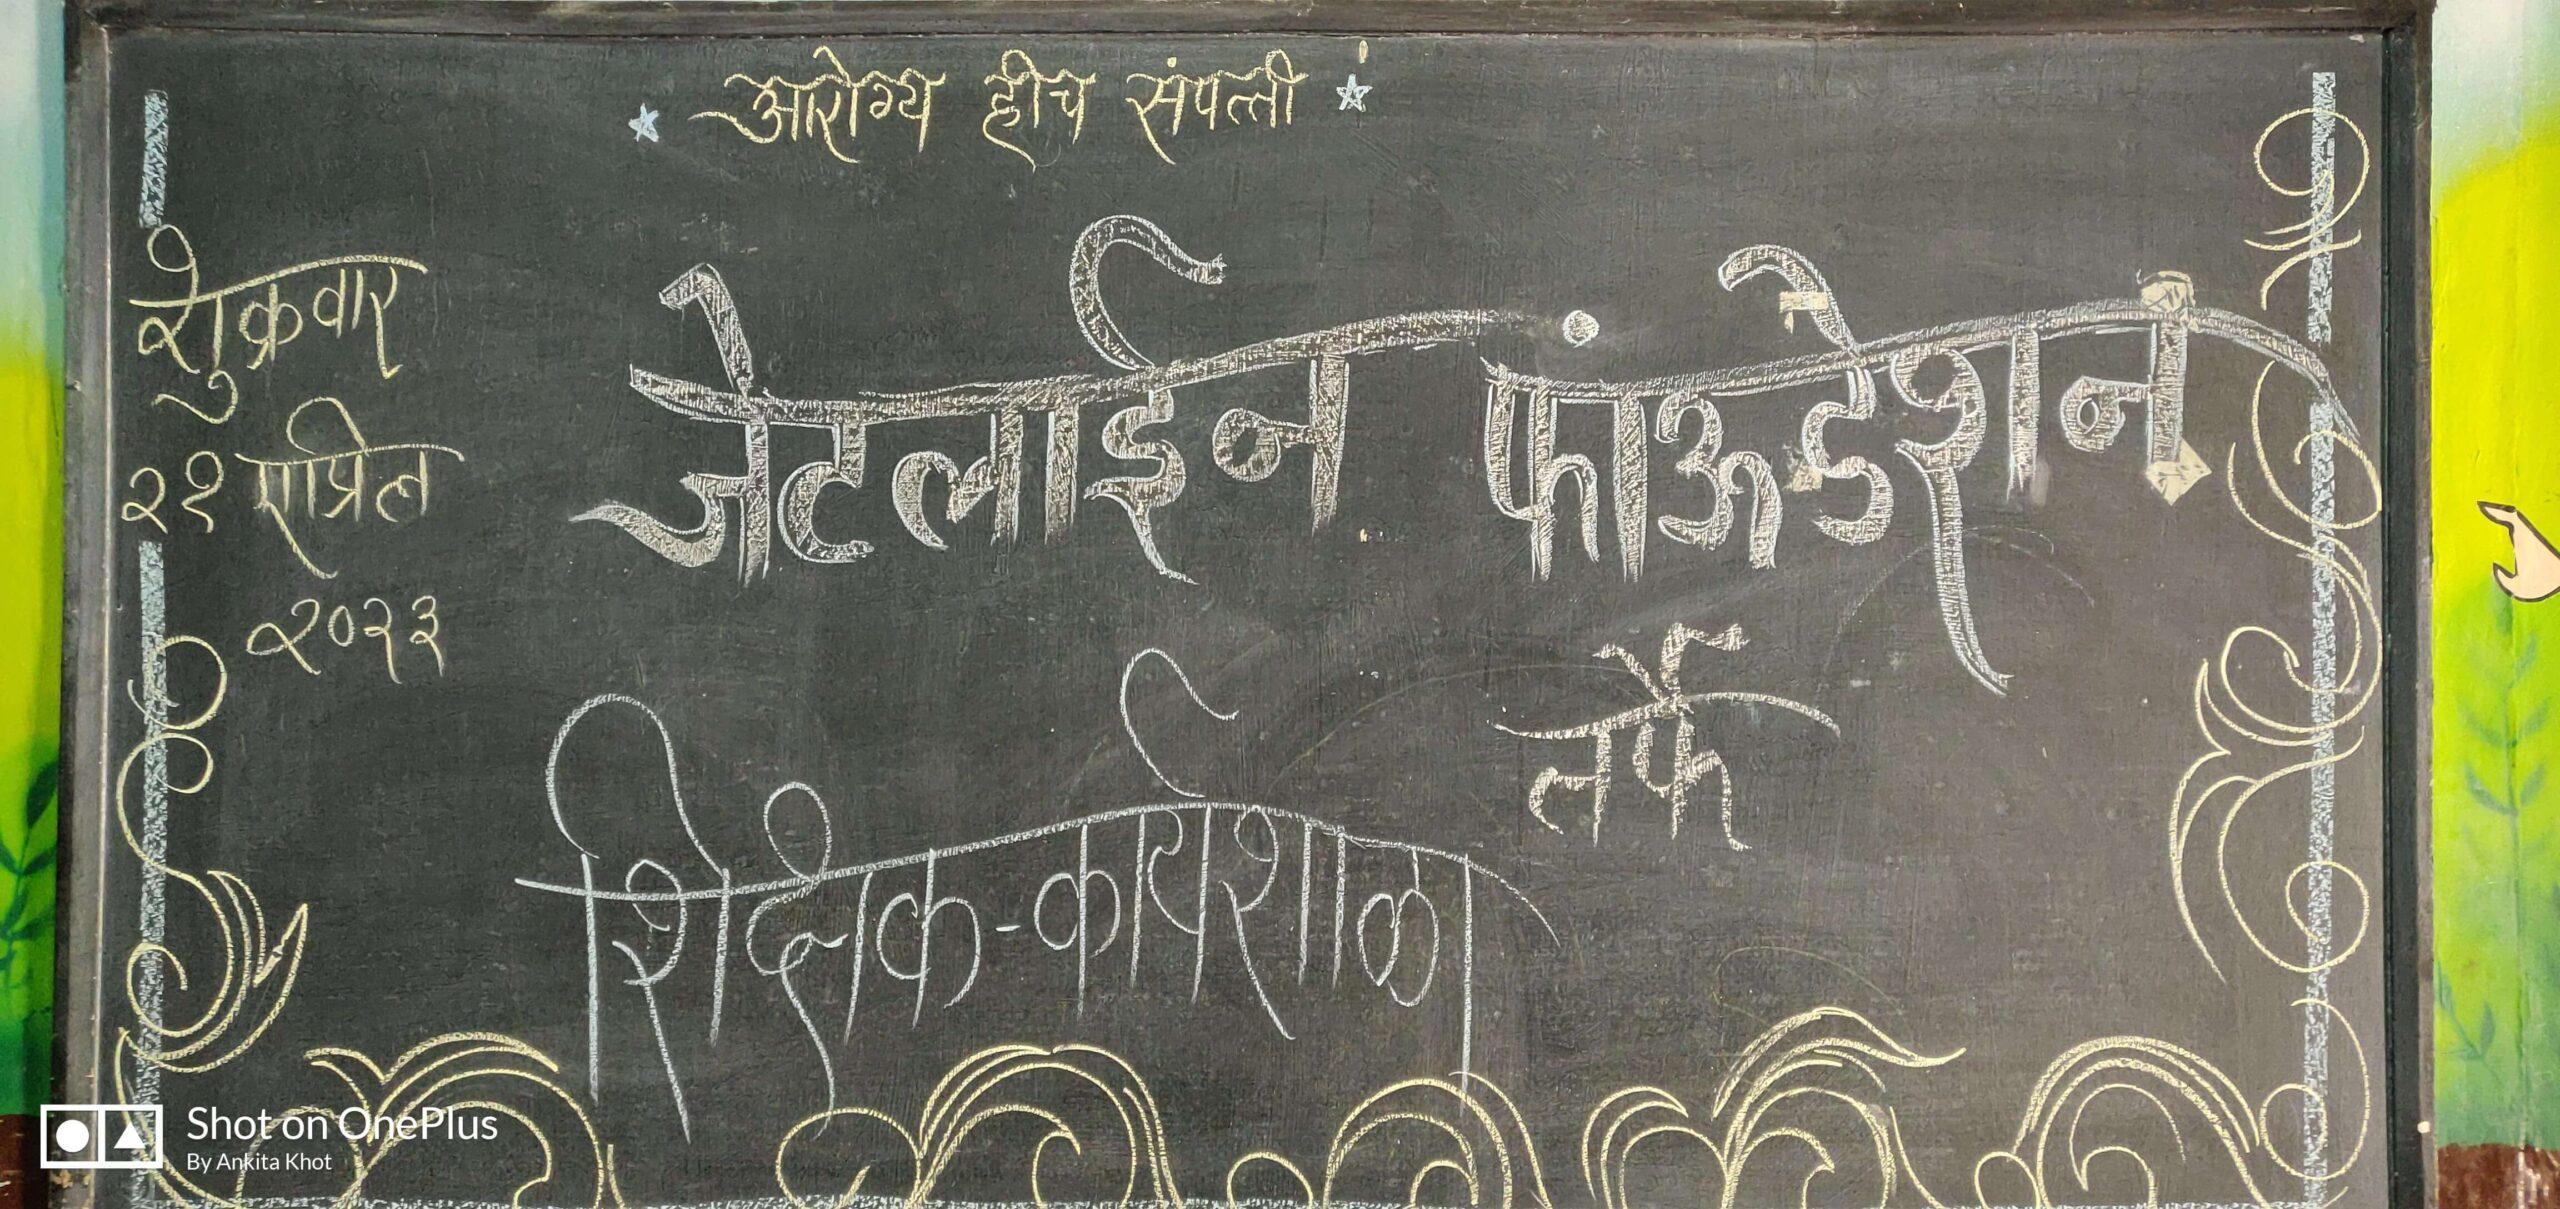 आरोग्य हीच संपत्ती
शुक्रवार
२१ एप्रिल
२०२३
जेटलाईन फांऊडेशन
तर्फे
शिक्षक-कार्यशाळा
Shot on OnePlus
By Ankita Khot